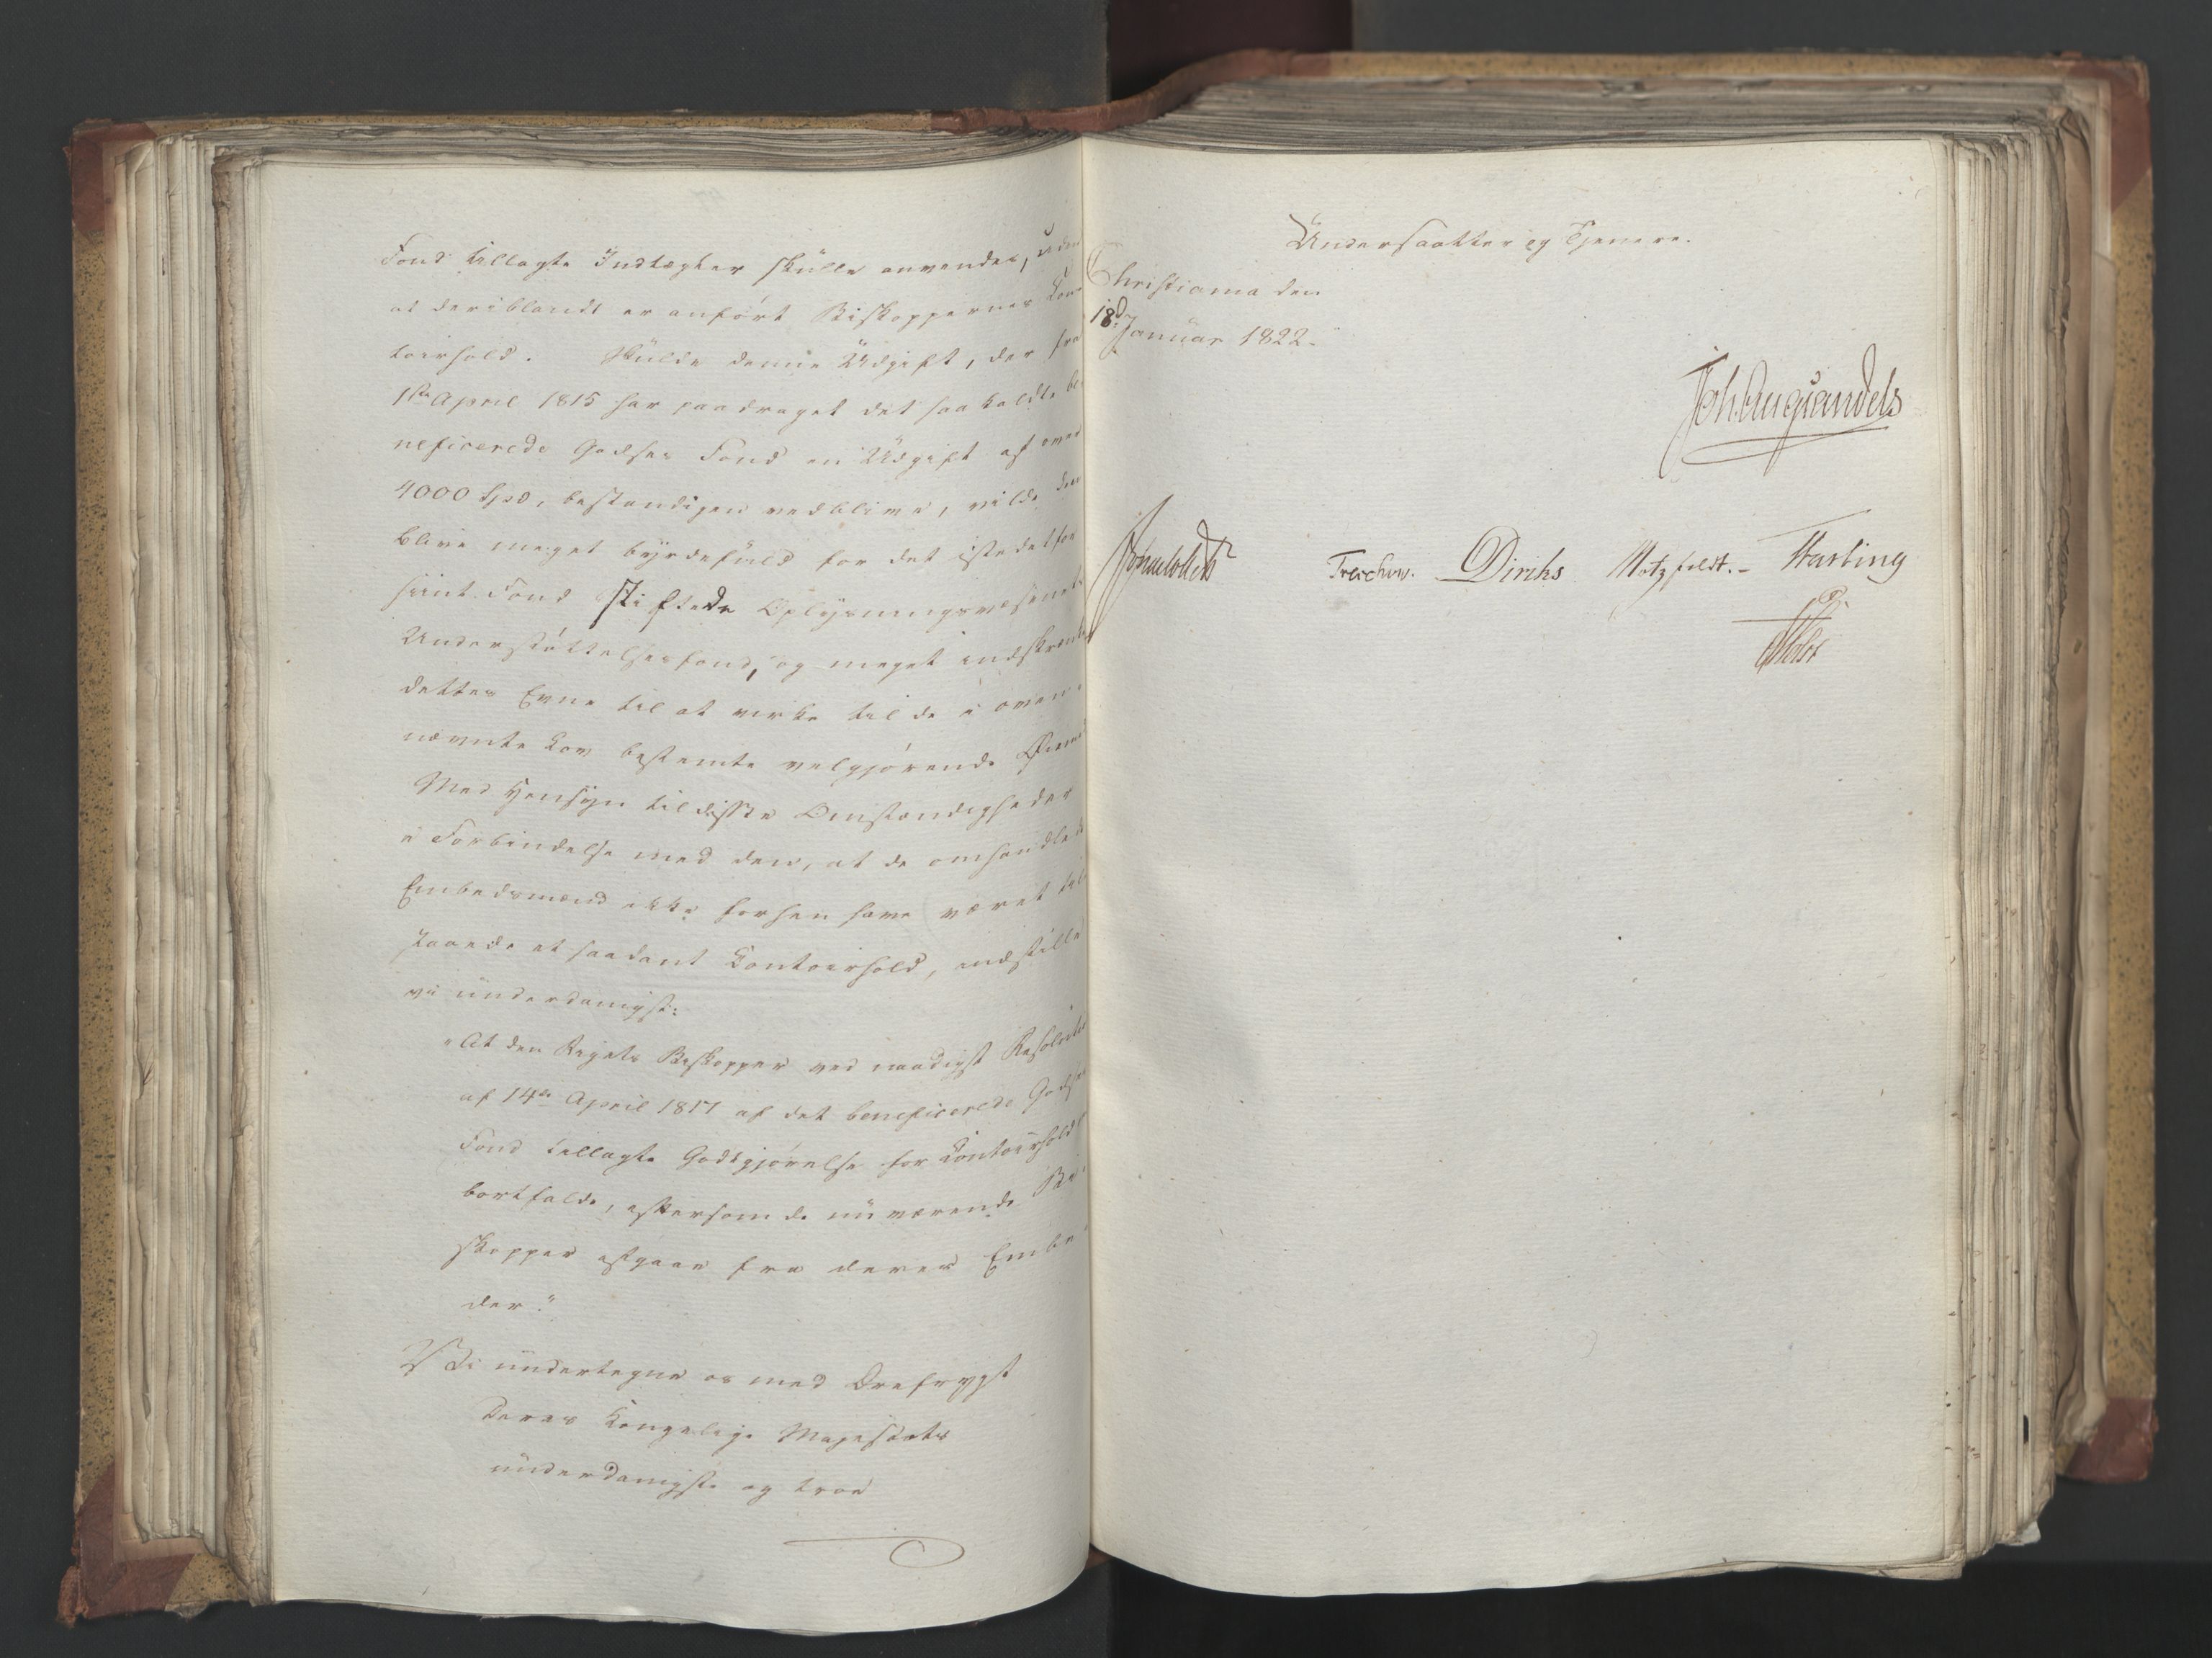 Fond tillagte Indtægter skulle anvendes, uden
at deriblandt er anført Biskoppernes Con
toirhold. Skulde denne Udgift, der fra
1ste April 1815 har paadraget det saakaldte be
neficerede Godses Fond en Udgift af over
4000 Spd, bestandigen vedblive, vilde den
blive meget byrdefuld for det istedetfor
hiint Fond stiftede Oplysningsvæsenets
Understøttelsesfond, og meget indskrænke
dettes Evne til at virke til de i oven
nævnte Lov bestemte velgjørende Øiemed
Med Hensyn til disse Omstændigheder
i Forbindelse med den, at de omhandlede
Embedsmænd ikke forhen have været til
staaede et saadant Contoirhold, indstille
vi underdanigst:
"At den Rigets Biskopper ved naadigst Resolution
af 14de April 1817 af det beneficerede Godses
Fond tillagte Godtgjørelse for Contoirhold
bortfalde, eftersom de nu værende Bi
skopper afgaae fra deres Embe
der."
Vi undertegne os med Ærefrygt
Deres Kongelige Majestæts
underdanigste og troe
Undersaatter og Tjenere.
Christiania den
18de Januar 1822.
Joh. Aug Sandels
Sommerhielm
Treschow. Diriks Motzfeldt. Fasting
Holst